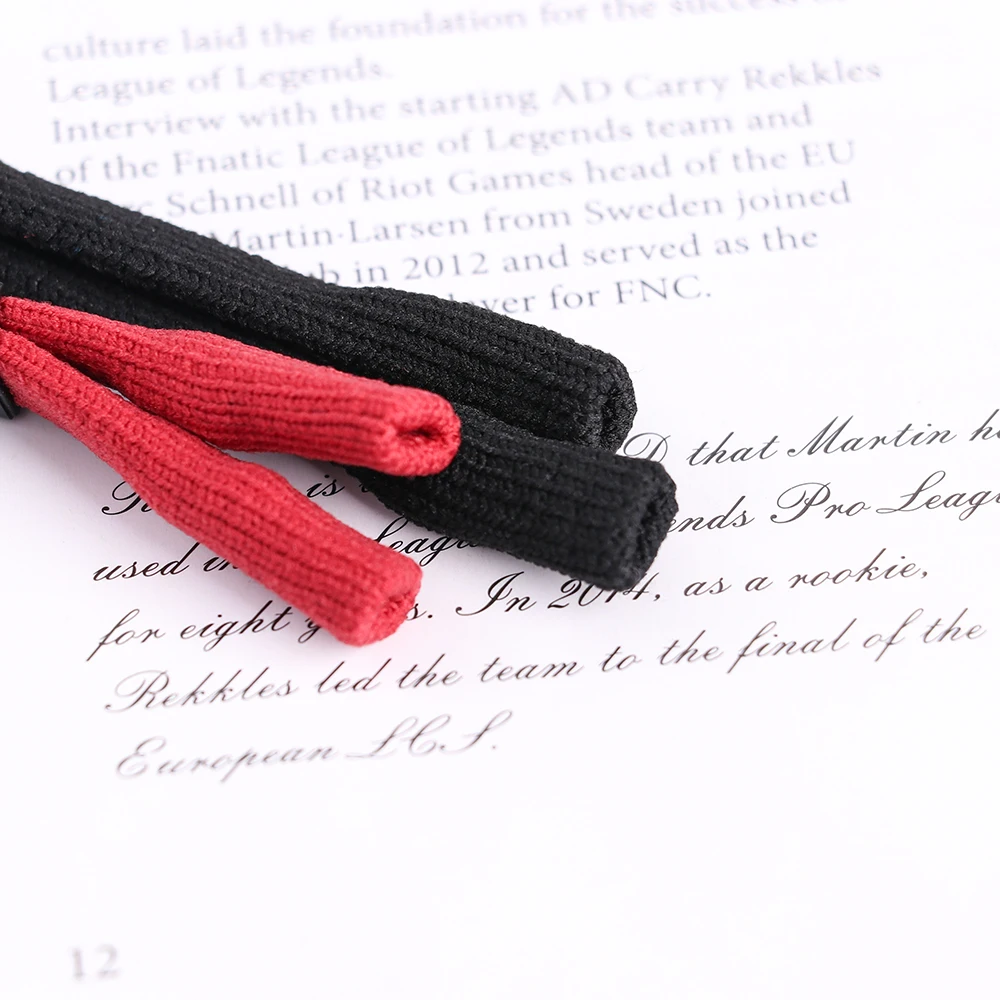 culture laid the foundation for the success of
League of Legends.
Interview with the starting AD Carry Rekkles
of the Fnatic League of Legends team and
Schnell of Riot Games head of the EU
Martin-Larsen from Sweden joined
in 2012 and served as the
for FNC.
that Martin
is
Pro League
used in
for eight In 2014, as a rookie,
Rekkles led the team to the final of the
European LCS.
12